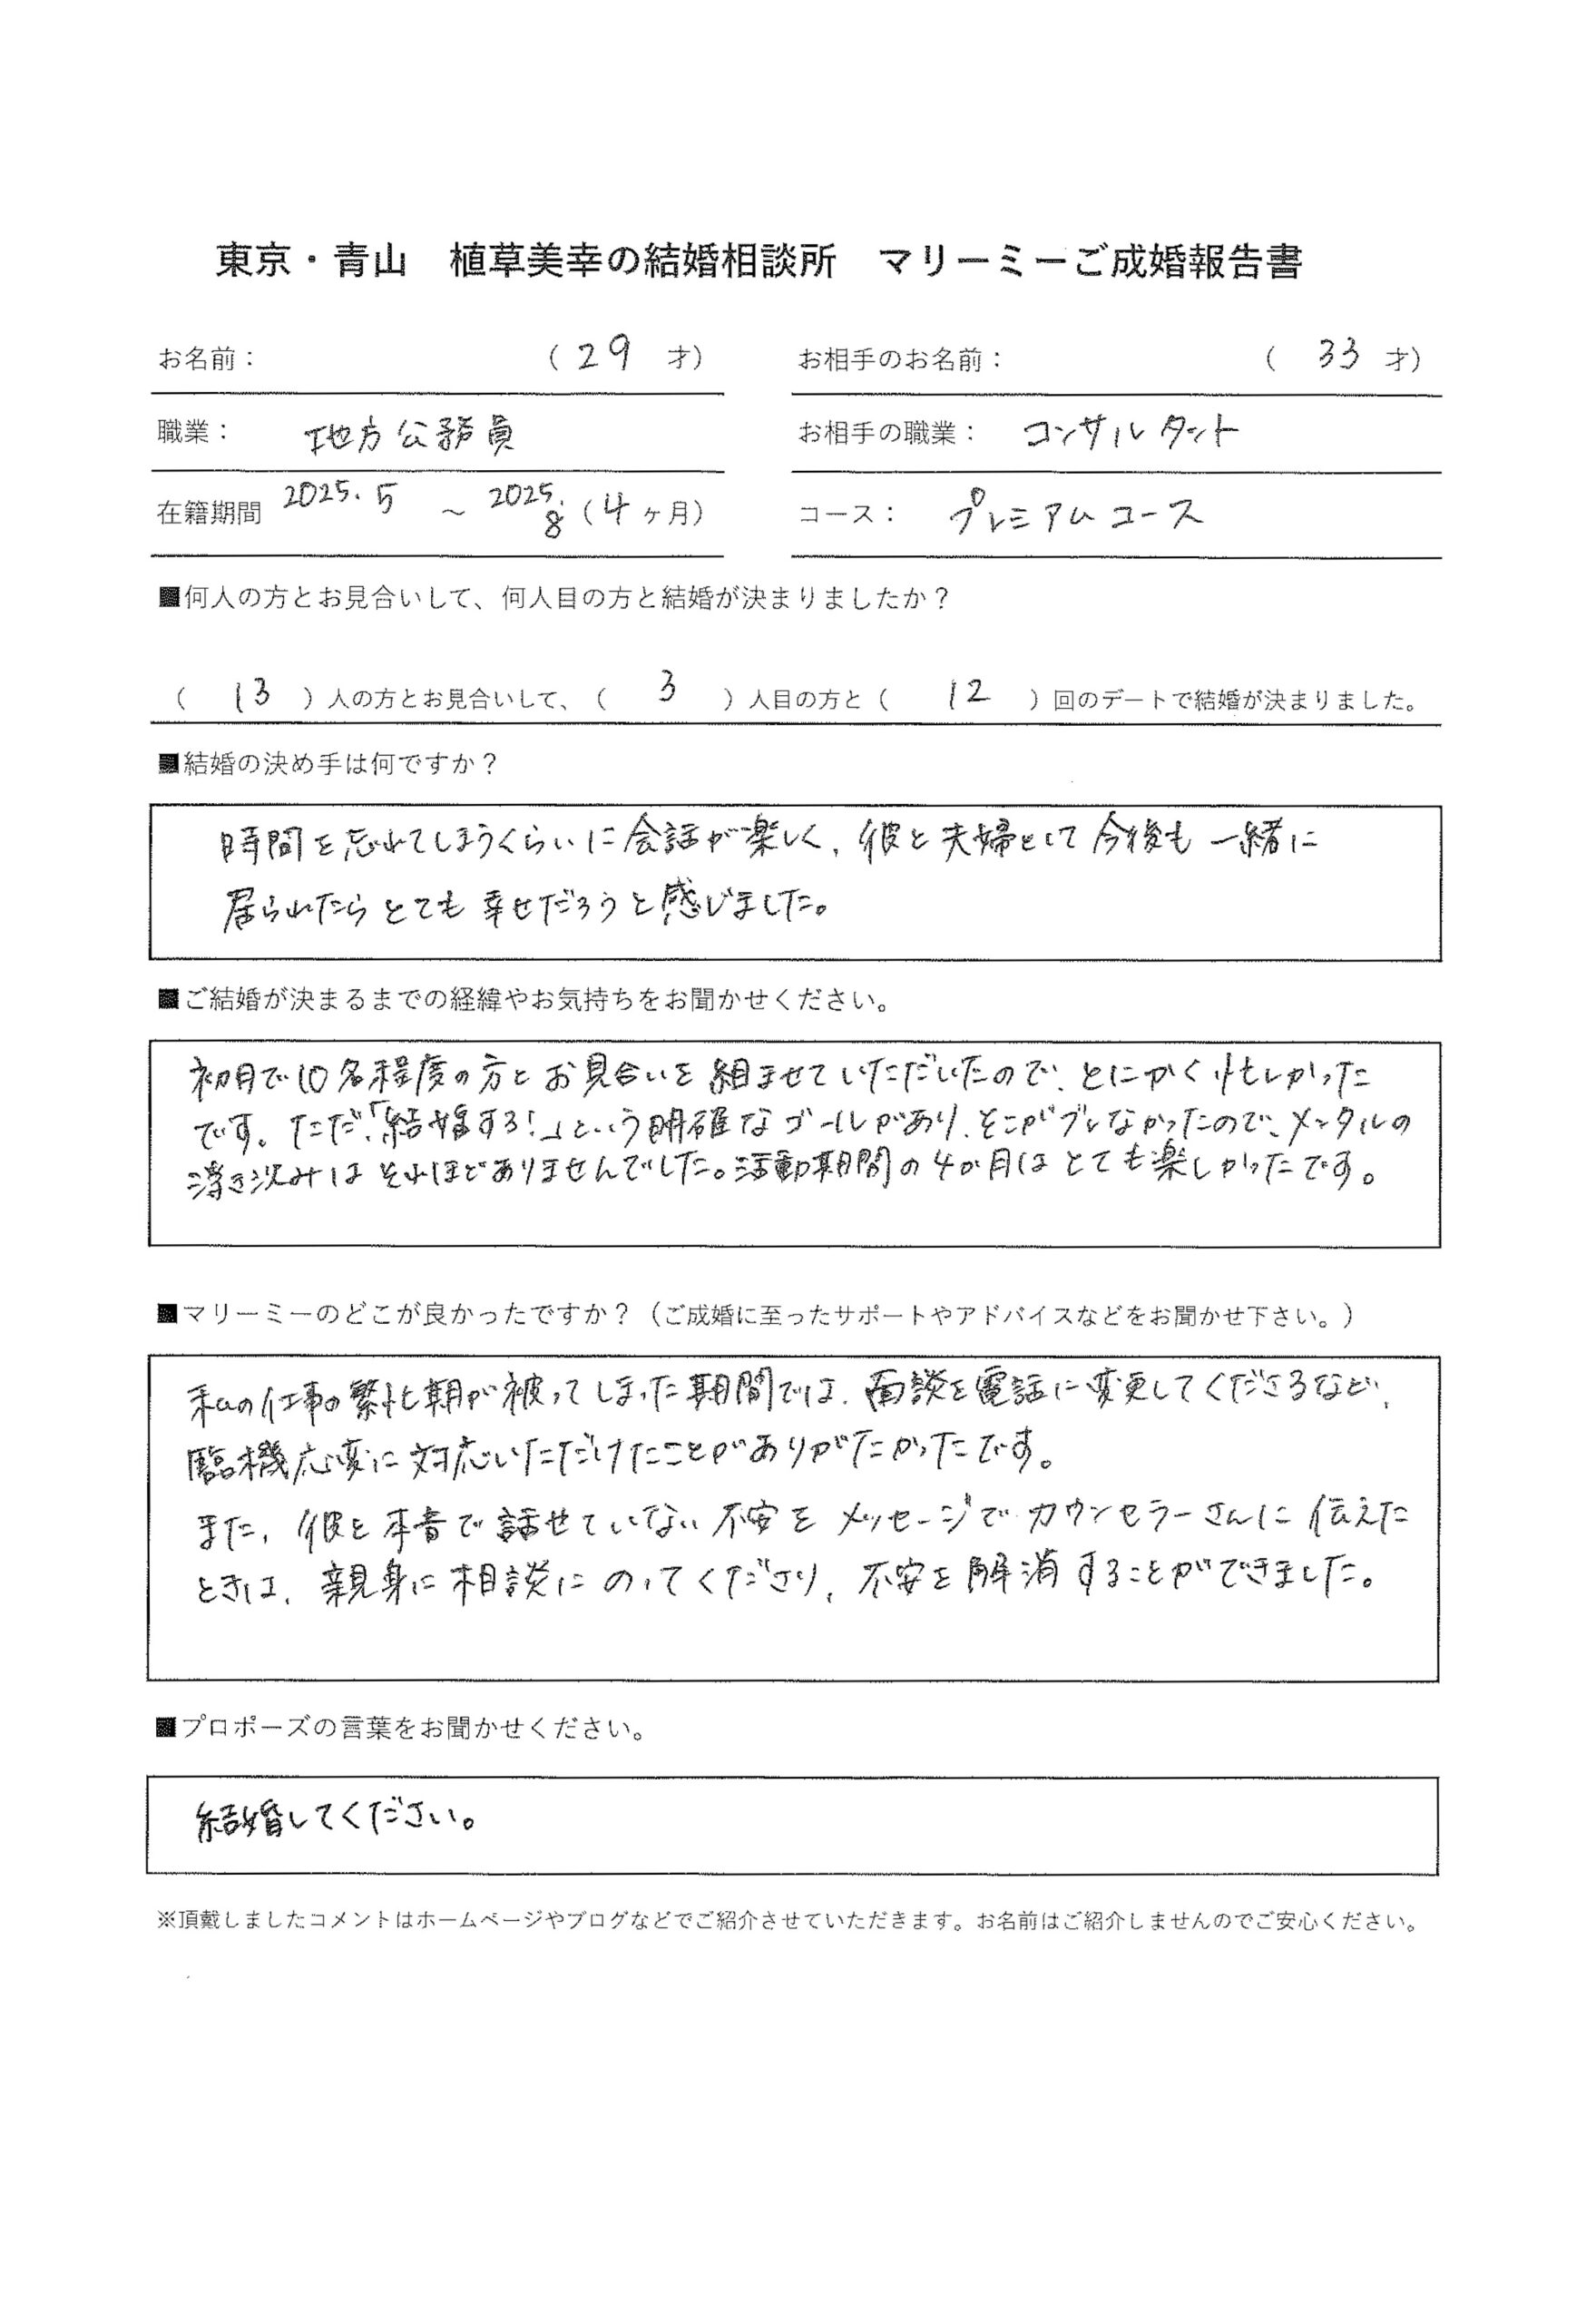 東京・青山　植草美幸の結婚相談所　マリーミーご成婚報告書
お名前：　（ 29 才）　お相手のお名前：　（ 33 才）
職業：　地方公務員　お相手の職業：　コンサルタント
在籍期間 2025.5 ～ 2025.8（4ヶ月）　コース：　プレミアムコース
■何人の方とお見合いして、何人目の方と結婚が決まりましたか？
（ 13 ）人の方とお見合いして、（ 3 ）人目の方と（ 12 ）回のデートで結婚が決まりました。
■結婚の決め手は何ですか？
時間を忘れてしまうくらいに会話が楽しく、彼と夫婦として今後も一緒に
居られたらとても幸せだろうと感じました。
■ご結婚が決まるまでの経緯やお気持ちをお聞かせください。
初月で10名程度の方とお見合いを組ませていただいたので、とにかく忙しかった
です。ただ、「結婚する！」という明確なゴールがあり、そこがブレなかったので、メンタルの
浮き沈みはそれほどありませんでした。活動期間の4か月はとても楽しかったです。
■マリーミーのどこが良かったですか？（ご成婚に至ったサポートやアドバイスなどをお聞かせ下さい。）
私の仕事の繁忙期が被ってしまった期間では、面談を電話に変更してくださるなど、
臨機応変に対応いただけたことがありがたかったです。
また、彼と本音で話せていない不安をメッセージでカウンセラーさんに伝えた
ときは、親身に相談にのってくださり、不安を解消することができました。
■プロポーズの言葉をお聞かせください。
結婚してください。
※頂戴しましたコメントはホームページやブログなどでご紹介させていただきます。お名前はご紹介しませんのでご安心ください。